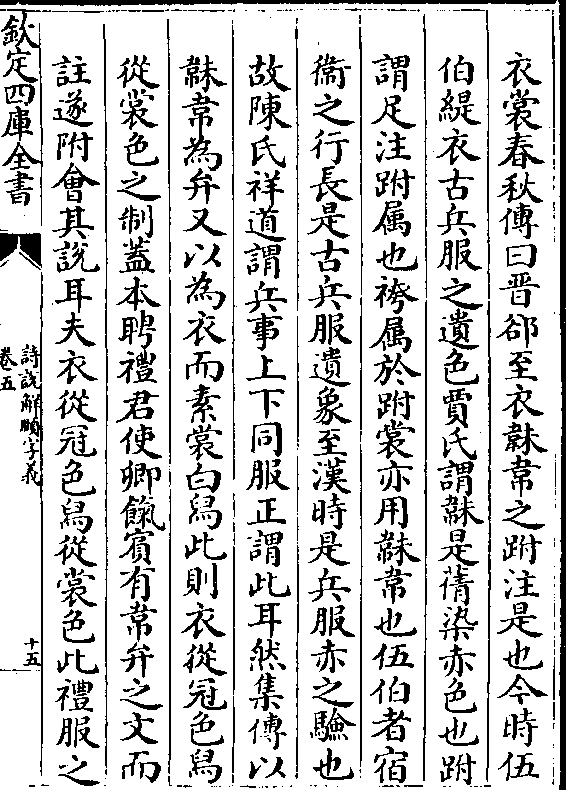 衣裳春秋傳曰晋郤至衣韎韋之跗注是也今時伍
伯緹衣古兵服之遺色賈氏謂韎是蒨染赤色也跗
謂足注跗属也袴属於跗裳亦用韎韋也伍伯者宿
衞之行長是古兵服遺象至漢時是兵服赤之驗也
故陳氏祥道謂兵事上下同服正謂此耳然集傳以
韎韋為弁又以為衣而素裳白舄此則衣從冠色舄
從裳色之制蓋本聘禮君使卿餼賓有韋弁之文而
註遂附會其說耳夫衣從冠色舄從裳色此禮服之
欽定四庫全書
詩說解頤字義
卷五
十五